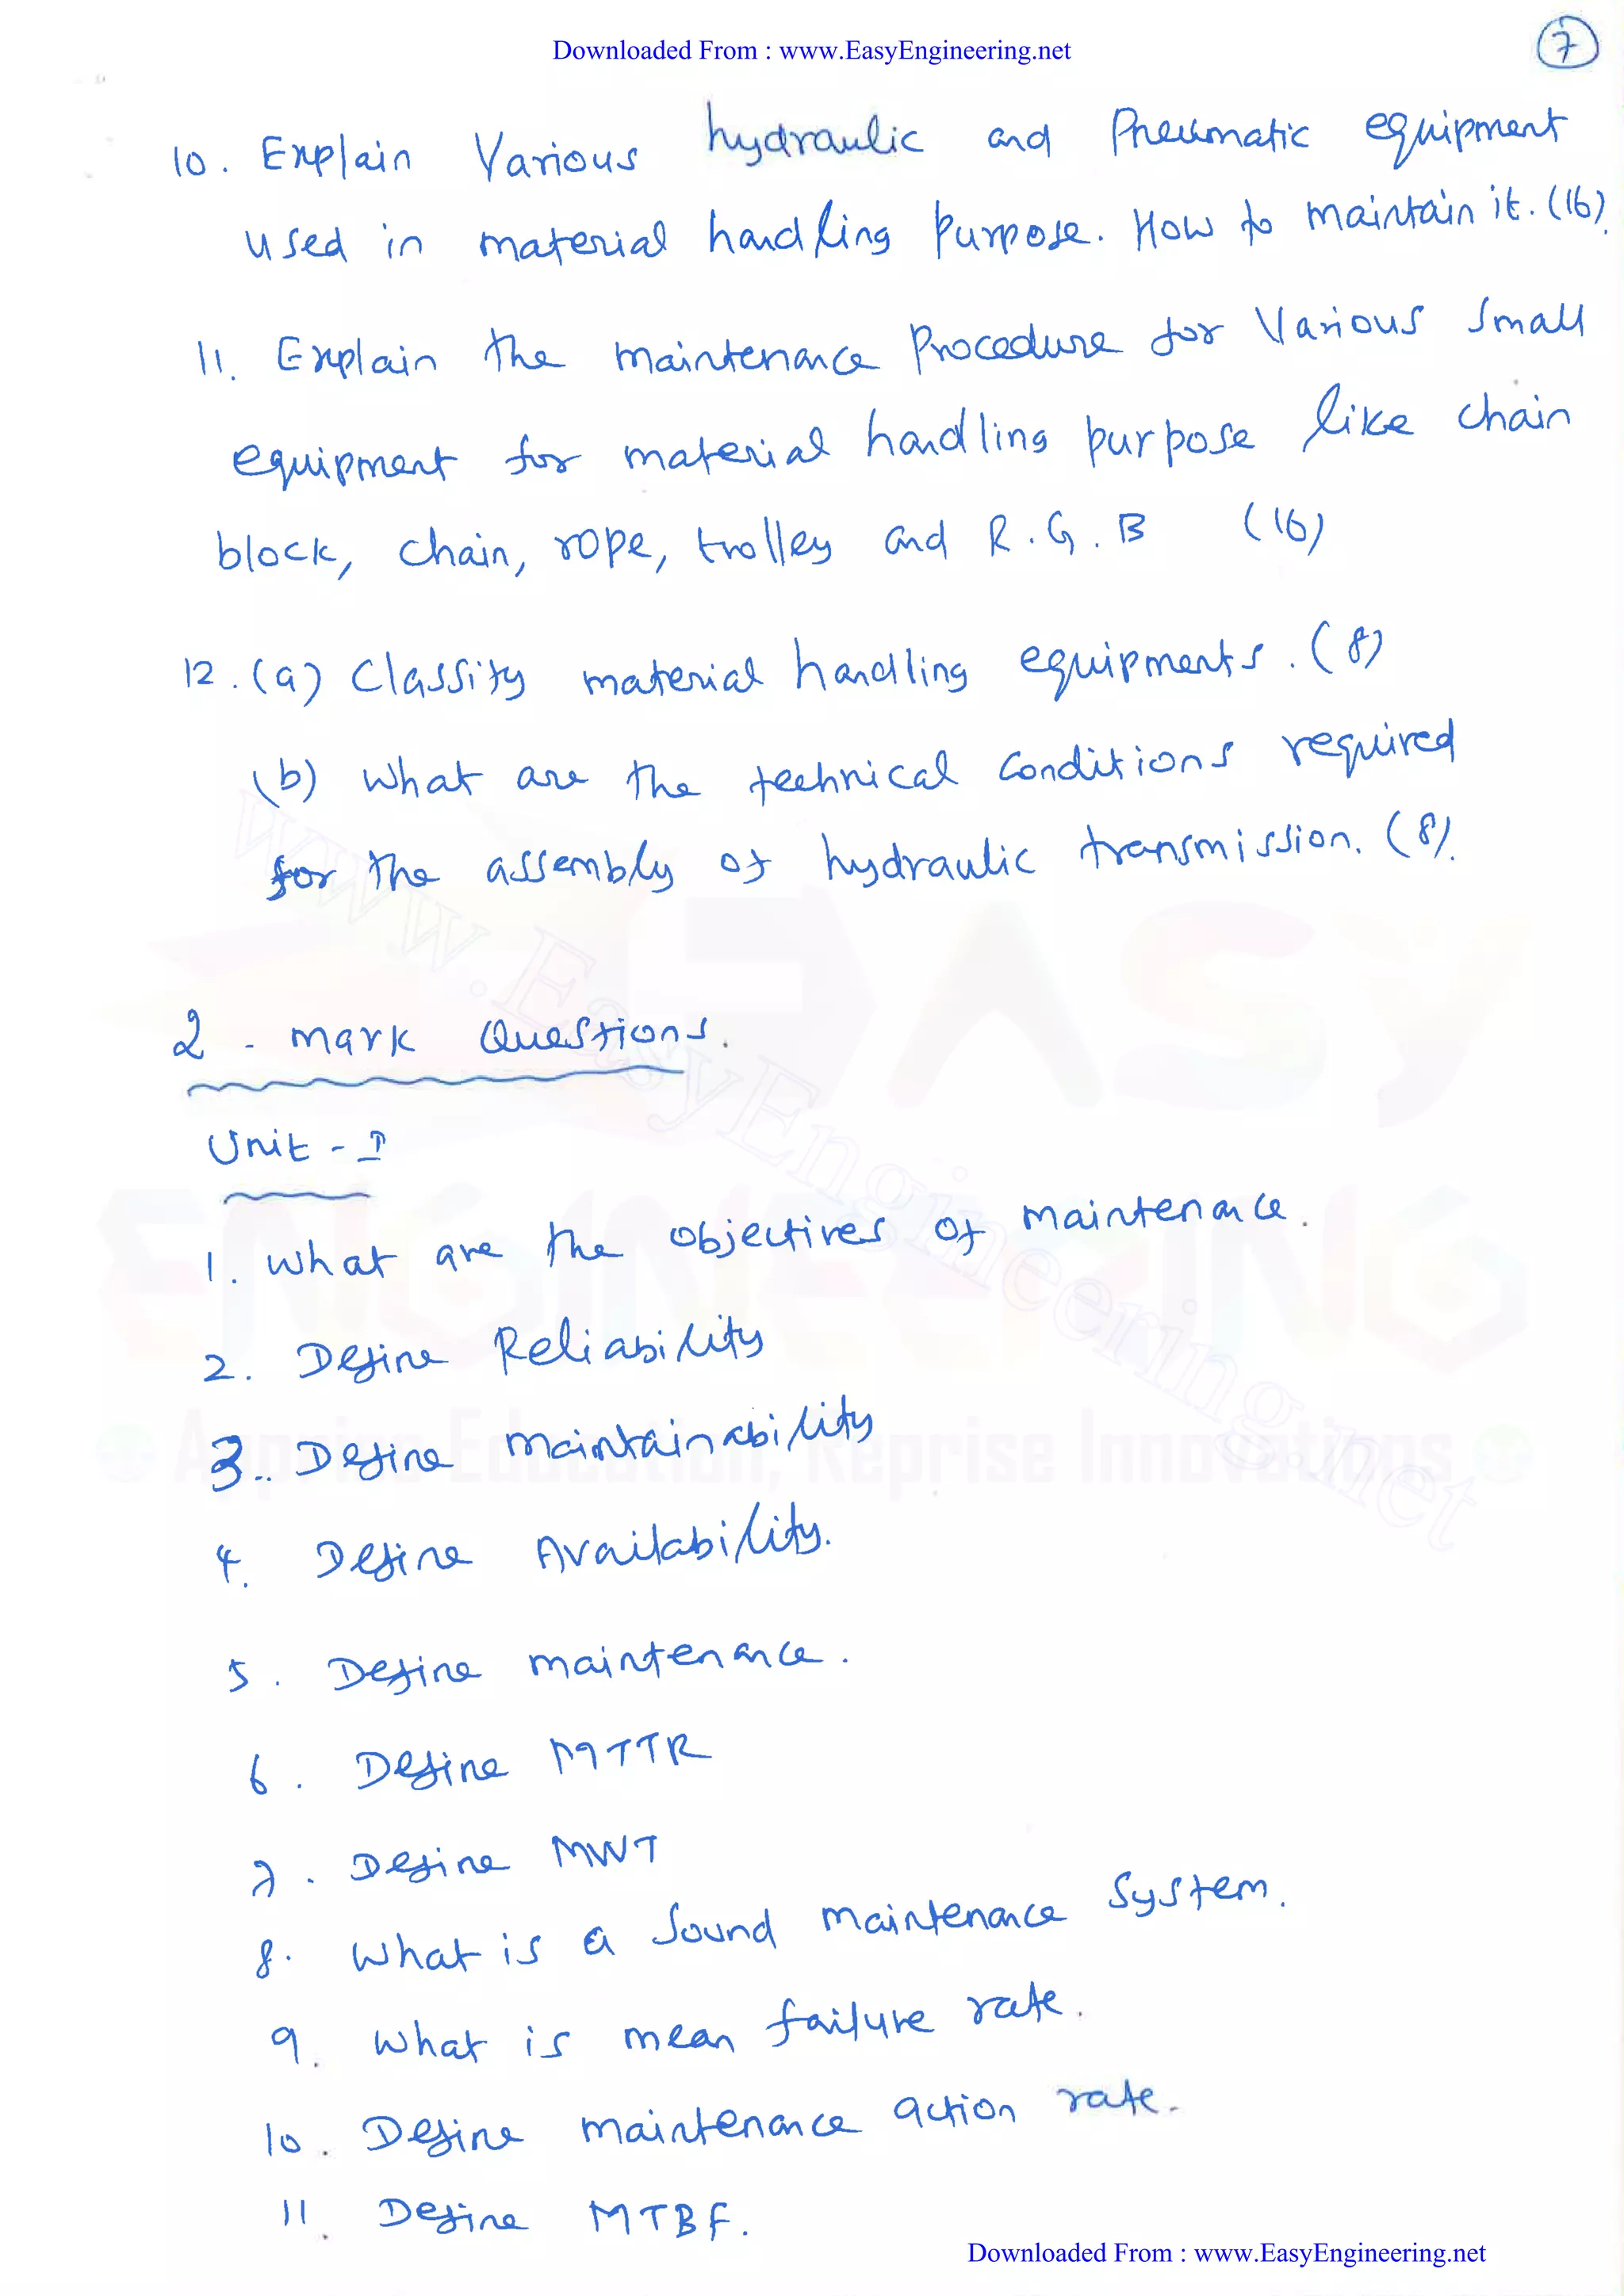 Downloaded From : www.EasyEngineering.net
7
10. Explain Various hydraulic and Pneumatic equipment
used in material handling Purpose. How to maintain it. (16).
11. Explain the maintenance Procedure for Various Small
equipment for material handling purpose like chain
block, chain, rope, trolley and R.G.B (16)
12. (a) Classify material handling equipments. (8)
(b) What are the technical Conditions required
for the assembly of hydraulic transmission. (8).
2 - mark Questions.
Unit - I
1. What are the objectives of maintenance.
2. Define Reliability
3. Define maintainability
4. Define Availability.
5. Define maintenance.
6. Define MTTR
7. Define MWT
8. What is a Sound maintenance System.
9. What is mean failure rate.
10. Define maintenance action rate.
11. Define MTBF.
www.EasyEngineering.net
EASY
ENGINEERING
Apprise Education, Reprise Innovations
Downloaded From : www.EasyEngineering.net